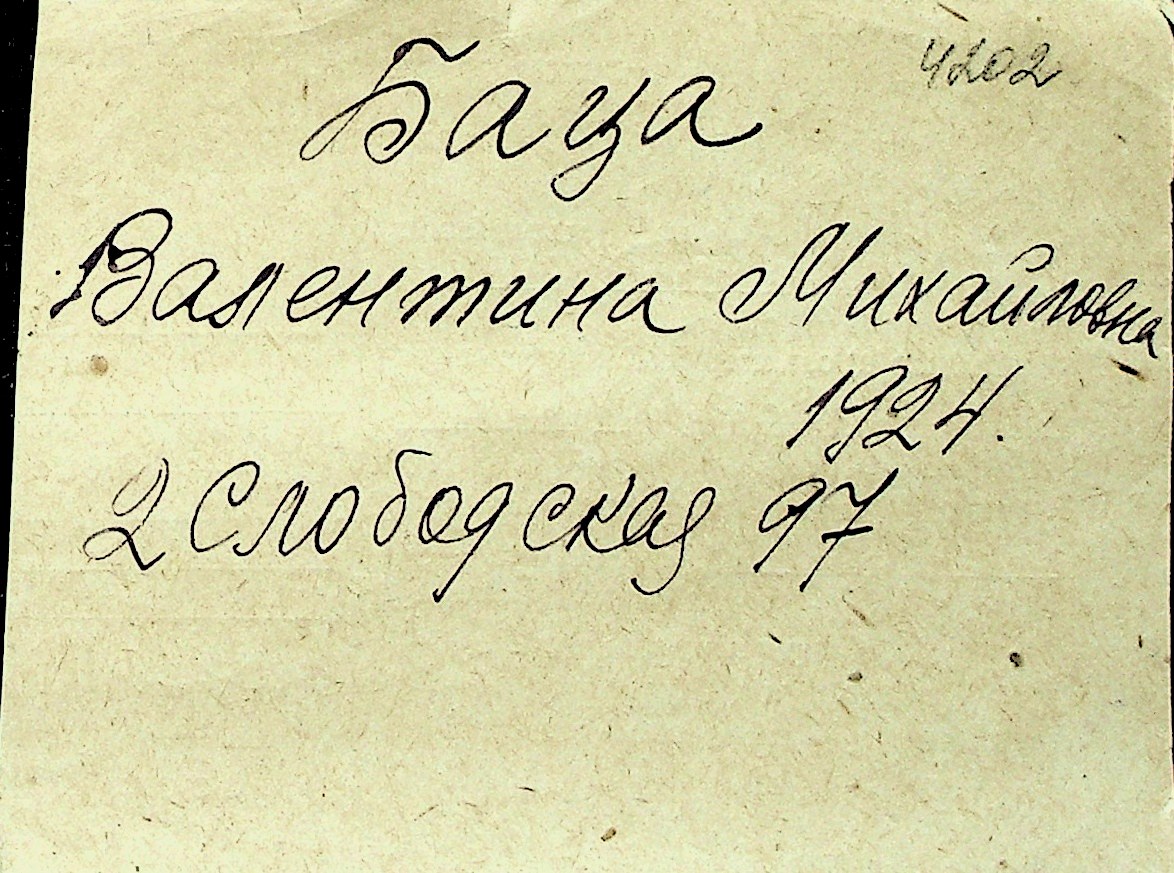 4202
Баца
Валентина Михайловна
1924.
2 Слободская 97